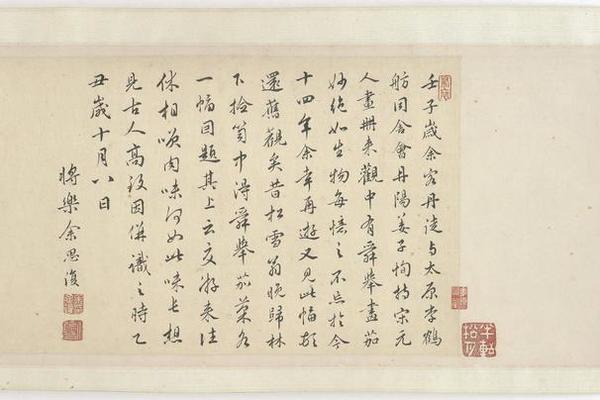 壬子歲余客丹徒与太原李鶴
舫同舍會丹陽姜子恂持宋元
人畫冊来觀中有舜舉畫茄
妙絕如生物每憶之不忘於今
十四年余幸再遊又見此幅頓
還舊觀矣昔松雪翁晚歸林
下撿笥中得舜舉茄菜各
一幅因題其上云交游来往
休相嗔肉味何如此味長想
見古人高致因併識之時乙
丑歲十月八日
將樂余思復